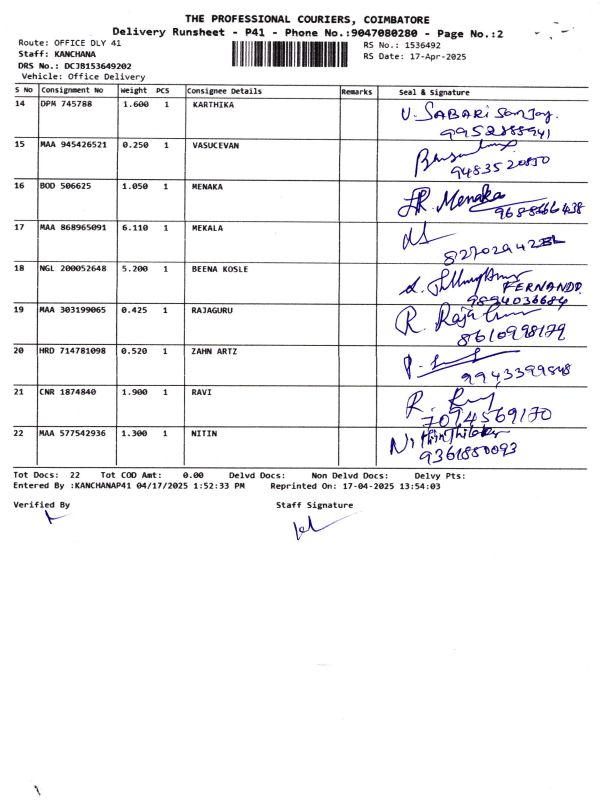 THE PROFESSIONAL COURIERS, COIMBATORE
Delivery Runsheet - P41 - Phone No.:9047080280 - Page No.:2
Route: OFFICE DLY 41 RS No.: 1536492
Staff: KANCHANA RS Date: 17-Apr-2025
DRS No.: DCJB153649202
Vehicle: Office Delivery
S No Consignment No Weight PCS Consignee Details Remarks Seal & signature
14 DPM 745788 1.600 1 KARTHIKA V. SABARI Sanjay.
9952888941
15 MAA 945426521 0.250 1 VASUCEVAN
9483520850
16 BOD 506625 1.050 1 MENAKA Menaka
17 MAA 868965091 6.110 1 MEKALA
18 NGL 200052648 5.200 1 BEENA KOSLE
FERNANDO.
9894036684
19 MAA 303199065 0.425 1 RAJAGURU R. Raja
8610998179
20 HRD 714781098 0.520 1 ZAHN ARTZ
9943399848
21 CNR 1874840 1.900 1 RAVI R.
7094569170
22 MAA 577542936 1.300 1 NITIN
9361850093
Tot Docs: 22 Tot COD Amt: 0.00 Delvd Docs: Non Delvd Docs: Delvy Pts:
Entered By :KANCHANAP41 04/17/2025 1:52:33 PM Reprinted On: 17-04-2025 13:54:03
Verified By Staff Signature